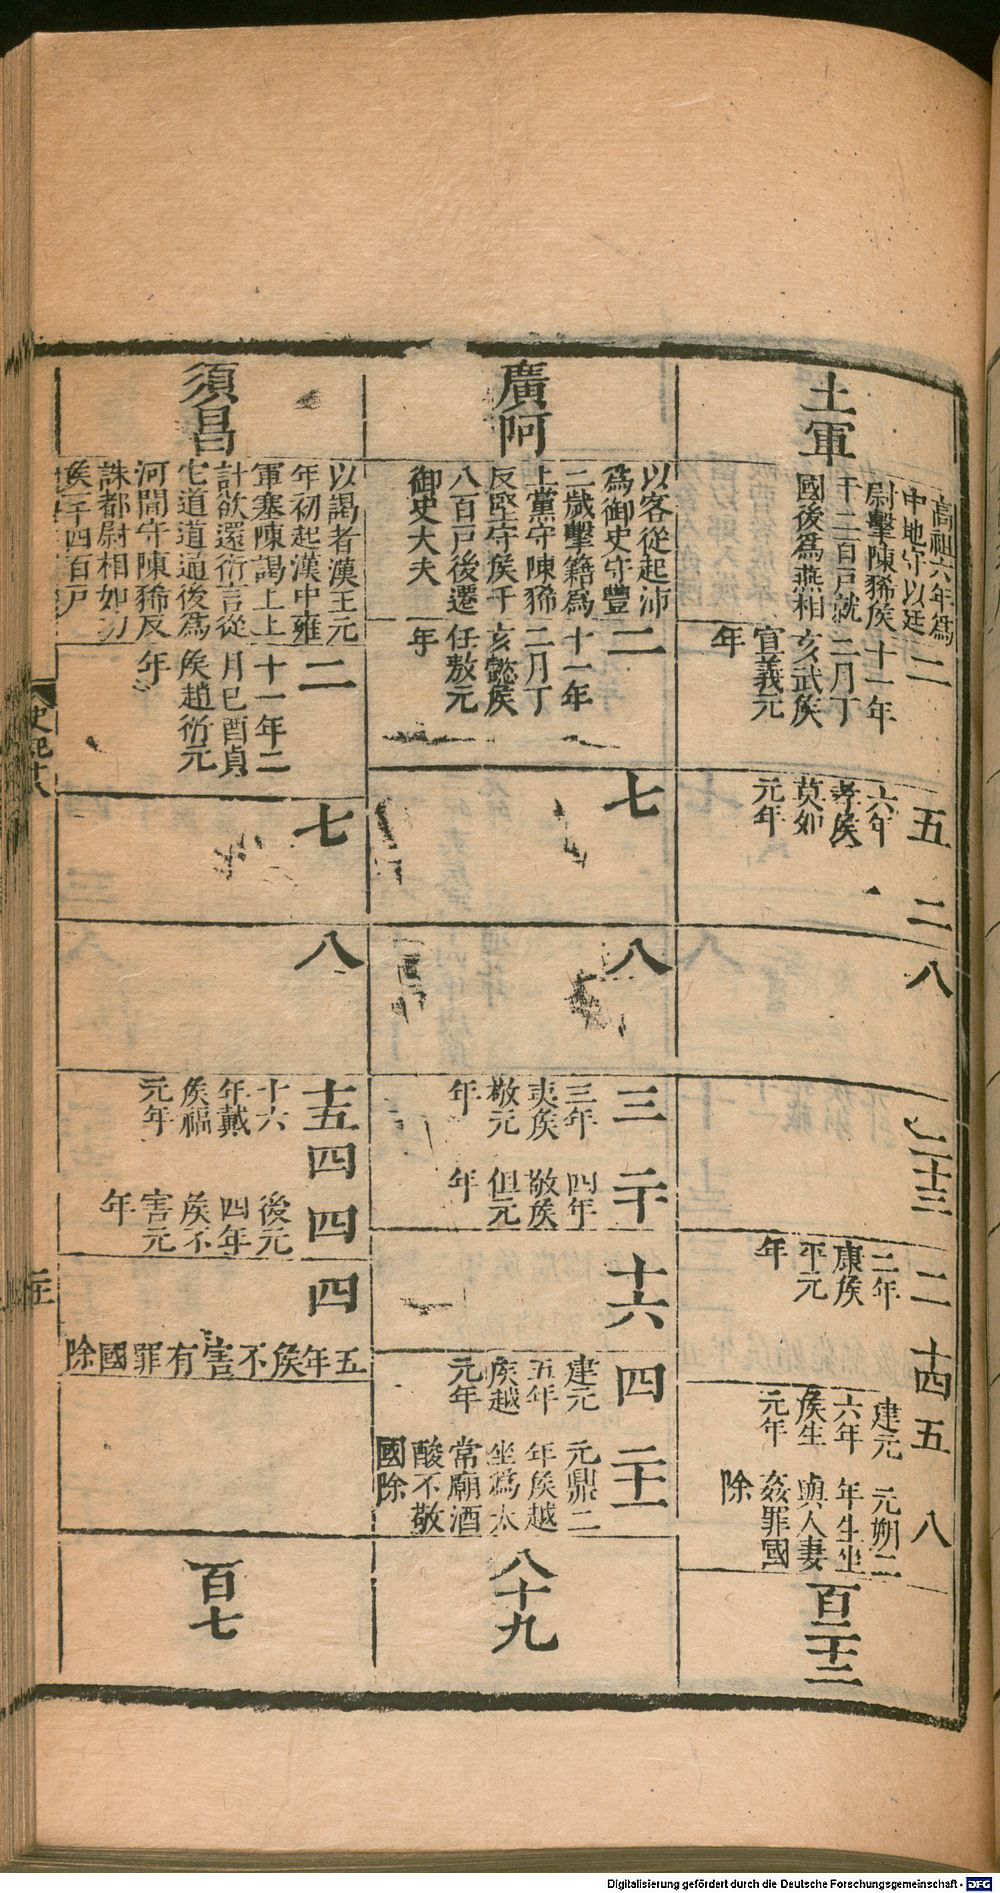 土軍
高祖六年爲
中地守以廷
尉擊陳豨侯
千二百戸就
國後爲燕相
二
十一年
二月丁
亥武侯
宣義元
年
五
六年
孝侯
莫如
元年
二
八
二十三
二
二年
康侯
平元
年
十四
五
建元
六年
侯生
元年
八
元朔二
年生坐
與人妻
姦罪國
除
百二十二
廣阿
以客從起沛
爲御史守豐
二歲擊籍爲
上黨守陳豨
反堅守侯千
八百戸後遷
御史大夫
二
十一年
二月丁
亥懿侯
任敖元
年
七
八
三
三年
夷侯
敬元
年
二十
四年
敬侯
但元
年
十六
四
建元
五年
侯越
元年
二十一
元鼎二
年侯越
坐爲太
常廟酒
酸不敬
國除
八十九
須昌
以謁者漢王元
年初起漢中雍
軍塞陳謁上上
計欲還衍言從
它道道通後爲
河間守陳豨反
誅都尉相如功
侯千四百戸
二
十一年二
月己酉貞
侯趙衍元
年
七
八
十五
十六
年戴
侯福
元年
四
四
後元
四年
侯不
害元
年
四
五年侯不害有罪國除
百七
史記十八
Digitalisierung gefördert durch die Deutsche Forschungsgemeinschaft - DFG